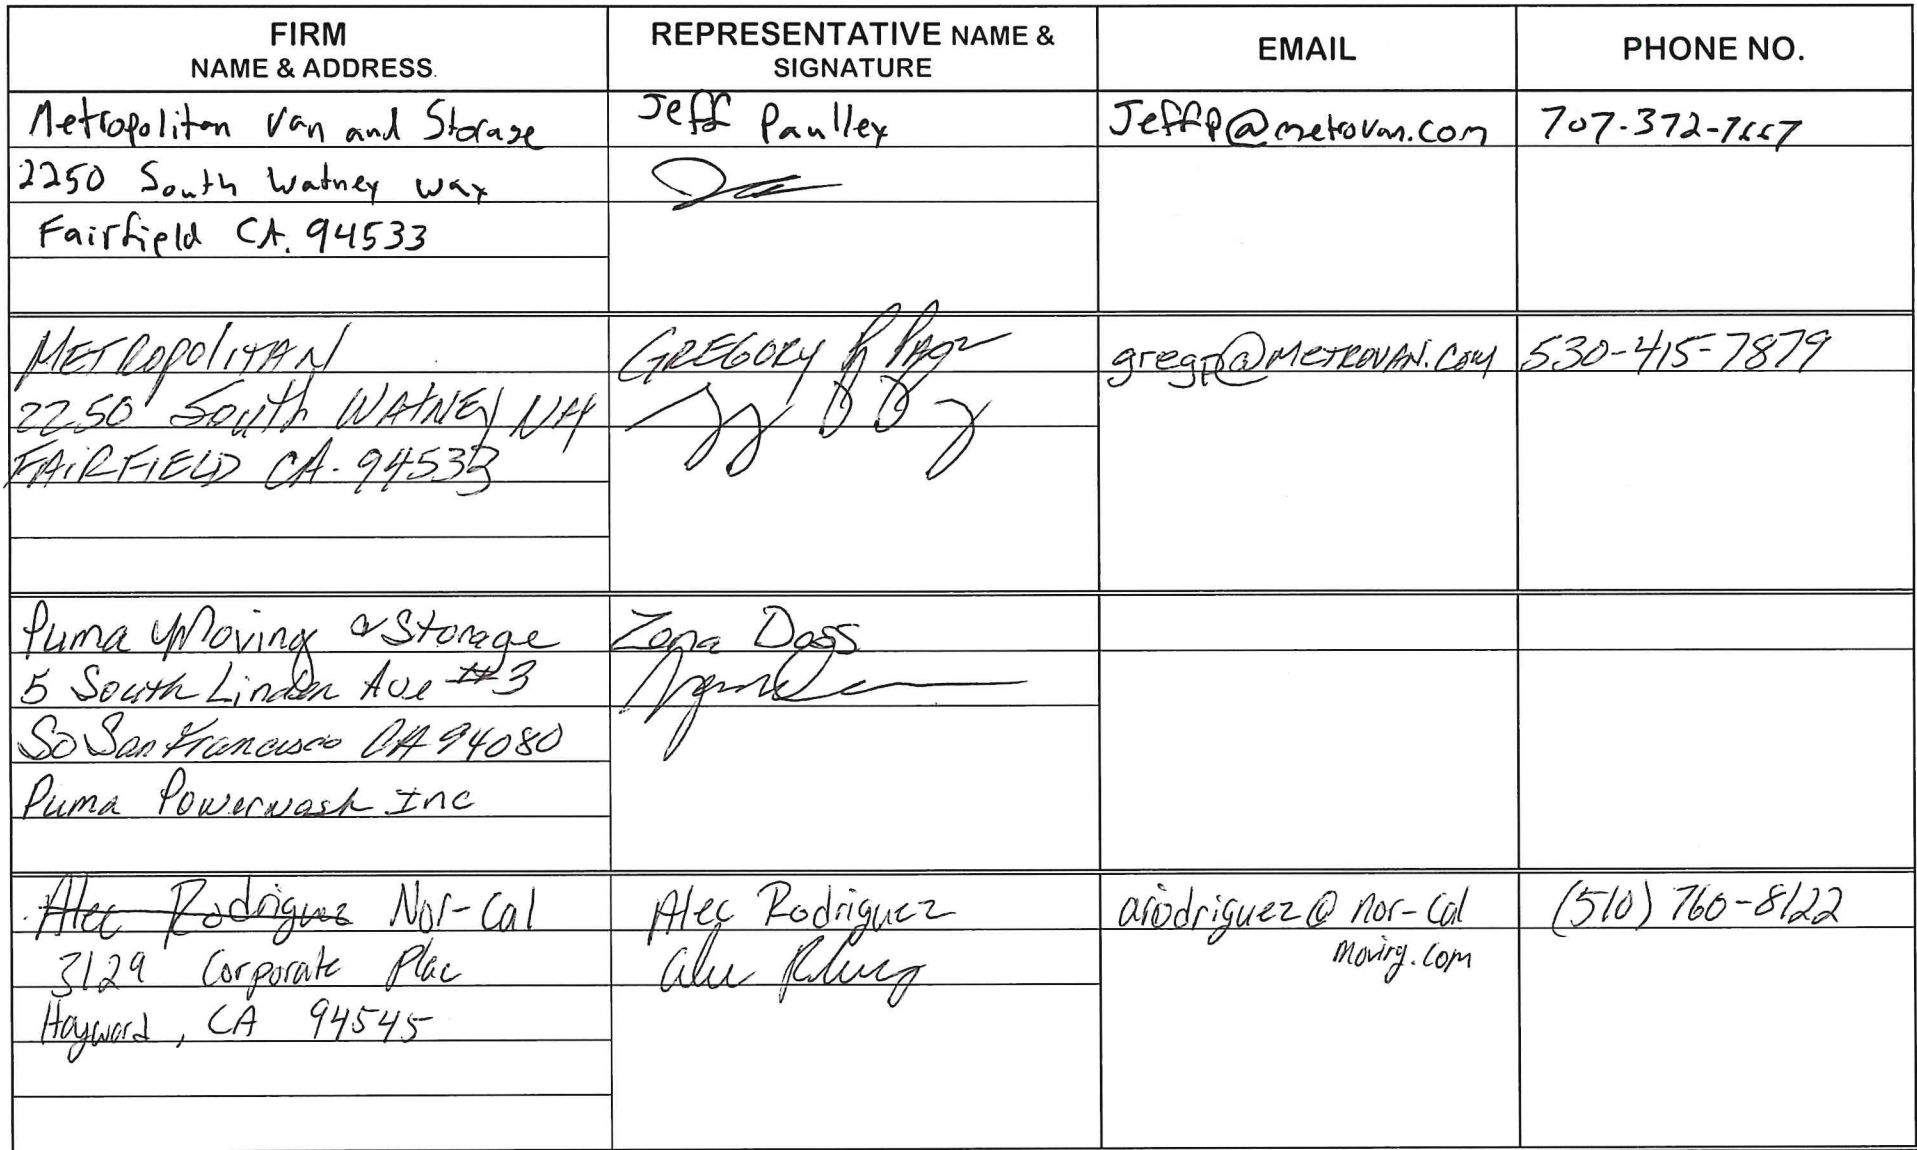 FIRM
NAME & ADDRESS.
REPRESENTATIVE NAME &
SIGNATURE
EMAIL
PHONE NO.
Metropolitan Van and Storage
2250 South Watney way
Fairfield CA. 94533
Jeff Paulley
Jeffp@metrovan.com
707-372-
METROPOLITAN
2250 South WATNEY
FAIRFIELD CA. 94533
GREGORY R
gregp@METROVAN.COM
530-415-7879
Puma Moving & Storage
5 South Linden Ave #3
So San Francisco CA 94080
Puma Powerwash Inc
Zona Dags
Alec Rodriguez Nor-Cal
3129 Corporate Plac
Hayward, CA 94545
Alec Rodriguez
arodriguez@nor-cal
moving.com
(510) 760-8122